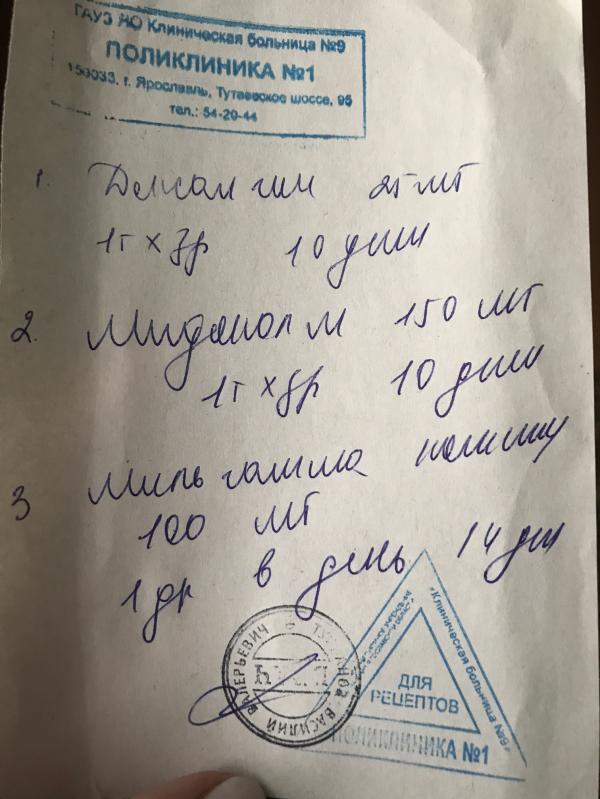 ГАУЗ ЯО Клиническая больница №9
ПОЛИКЛИНИКА №1
150033, г. Ярославль, Тутаевское шоссе, 95
тел.: 54-20-44
1. Дексалгин 25 мг
1т х 3р 10 дней
2. Мидокалм 150 мг
1т х 3р 10 дней
3 Мильгамма композит
100 мг
1 др в день 14 дн
ВАСИЛИЙ ВАЛЕРЬЕВИЧ
ВРАЧ
ДЛЯ
РЕЦЕПТОВ
«Клиническая больница №9»
ПОЛИКЛИНИКА №1